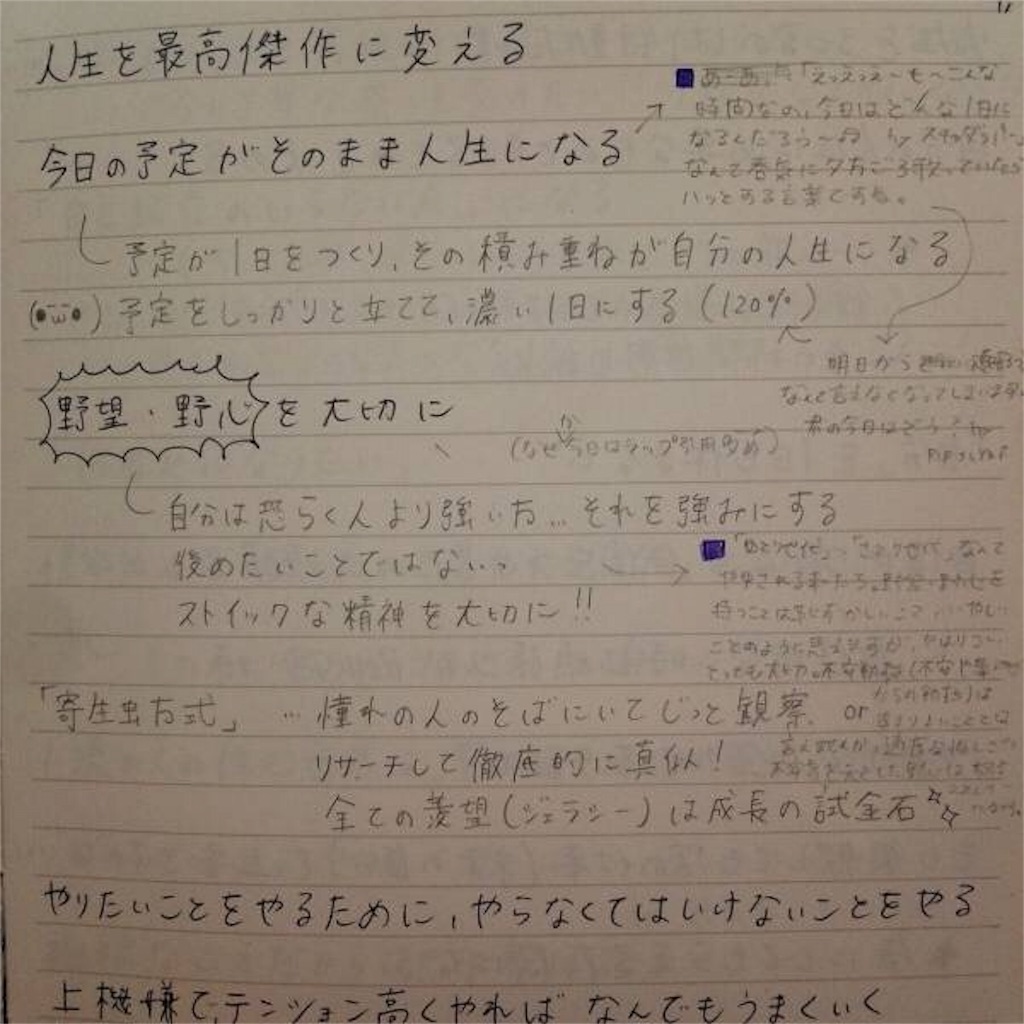 人生を最高傑作に変える
今日の予定がそのまま人生になる
あーあ、「えっえっえ〜も〜こんな
時間なの、今日はどんな1日に
なるんだろう〜♫ by スチャダラパー」
なんて呑気に夕方ごろ歌っていたら
ハッとする言葉ですね。
予定が1日をつくり、その積み重ねが自分の人生になる
予定をしっかりと立てて、濃い1日にする(120%)
明日から
なんて言えなくなってしまいます
君の今日はどう?by
野望・野心を大切に
(なぜか今日はラップ引用多め)
自分は恐らく人より強い方…それを強みにする
後めたいことではないっ
ストイックな精神を大切に!!
「ゆとり世代」「さとり世代」なんて
持つことは
ことのように思えますが、やはり
「寄生虫方式」…憧れの人のそばにいてじっと観察 or
リサーチして徹底的に真似!
全ての羨望(ジェラシー)は成長の試金石
やりたいことをやるために、やらなくてはいけないことをやる
上機嫌で、テンション高くやれば なんでもうまくいく